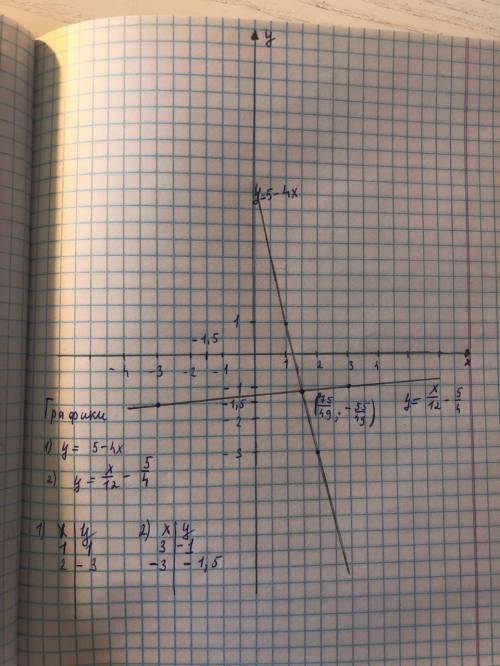 y
y=5-4x
1
-1,5
-4 -3 -2 -1 1 2 3 4 x
-1
-1,5
-2
-3
(75/49; -55/49)
y= x/12 - 5/4
Графики
1) y= 5-4x
2) y= x/12 - 5/4
1) x y
1 1
2 -3
2) x y
3 -1
-3 -1,5